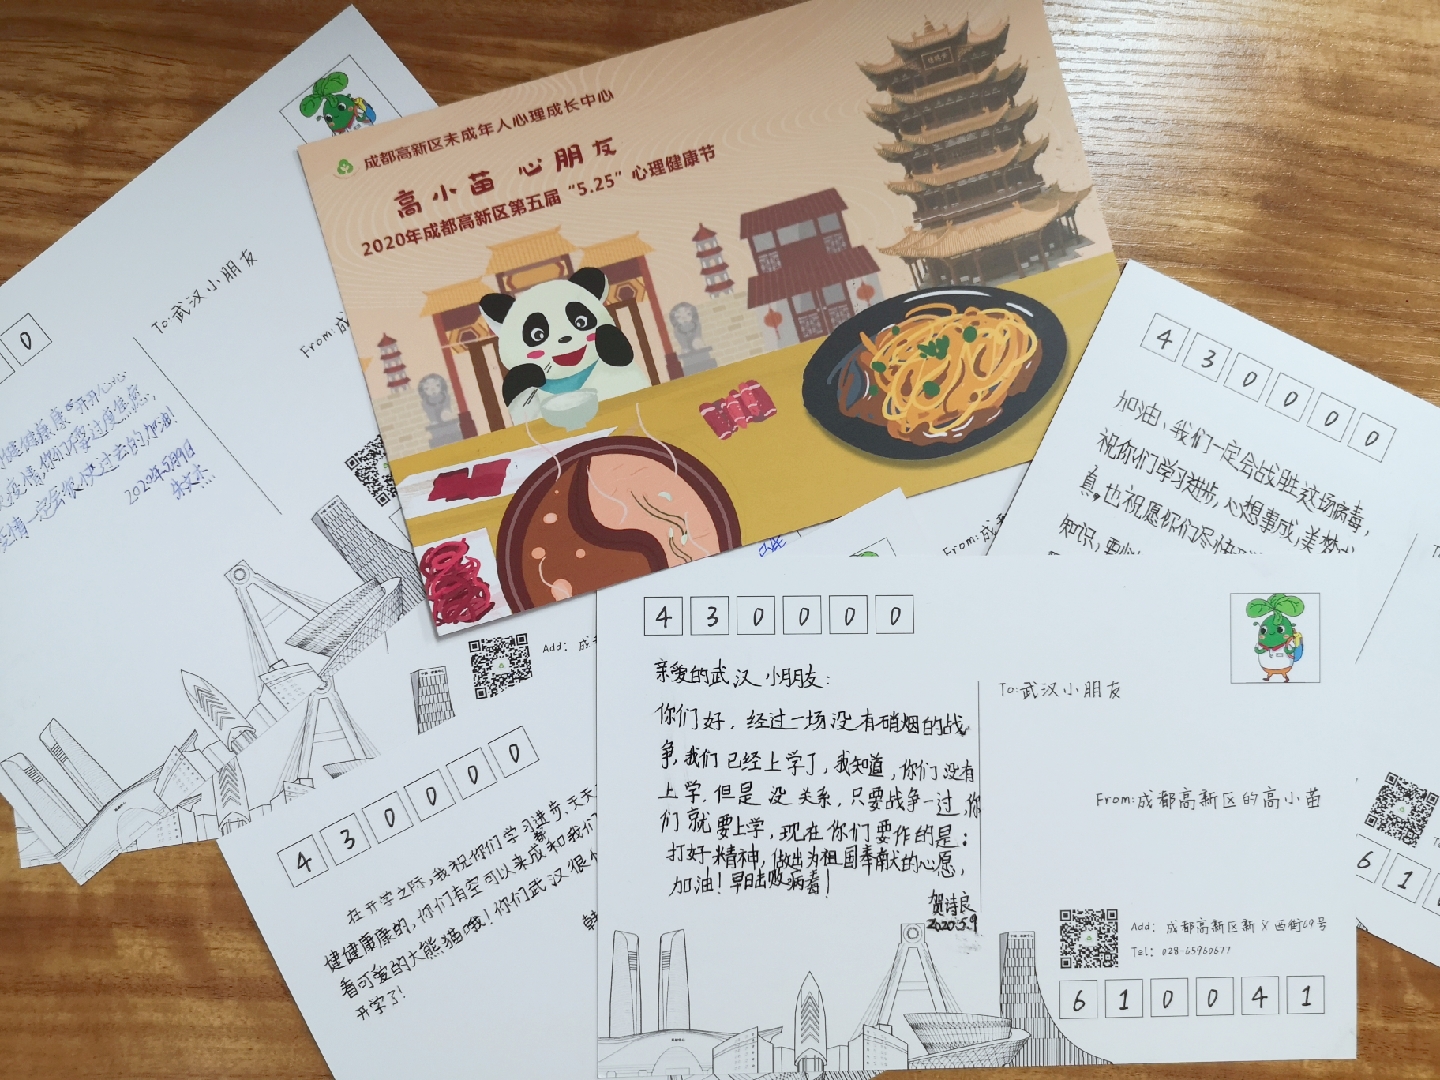 成都高新区未成年人心理成长中心
高小苗 心朋友
2020年成都高新区第五届“5.25”心理健康节
0
To:武汉小朋友
From:成
健健康康
开开心心
疫情,你们不要过度焦虑,
疫情一定会很快过去的加油!
2020年5月9日
Add: 成
430000
加油,我们一定会战胜这场病毒,
祝你们学习进步,心想事成,美梦
真,也祝愿你们尽快
知识,
From:成
61
430000
在开学之际,我祝你们学习进步,天天
健健康康的,你们有空可以来成都和我们
看可爱的大熊猫哦!你们武汉很
开学了!
韩
430000
亲爱的武汉小朋友:
你们好,经过一场没有硝烟的战
争,我们已经上学了,我知道,你们没有
上学,但是没关系,只要战争一过,你
们就要上学,现在你们要作的是:
打好精神,做出为祖国奉献的心愿,
加油!早日击败病毒!
贺诗良
2020.5.9
To:武汉小朋友
From:成都高新区的高小苗
Add: 成都高新区新义西街69号
Tel: 028-65960677
610041